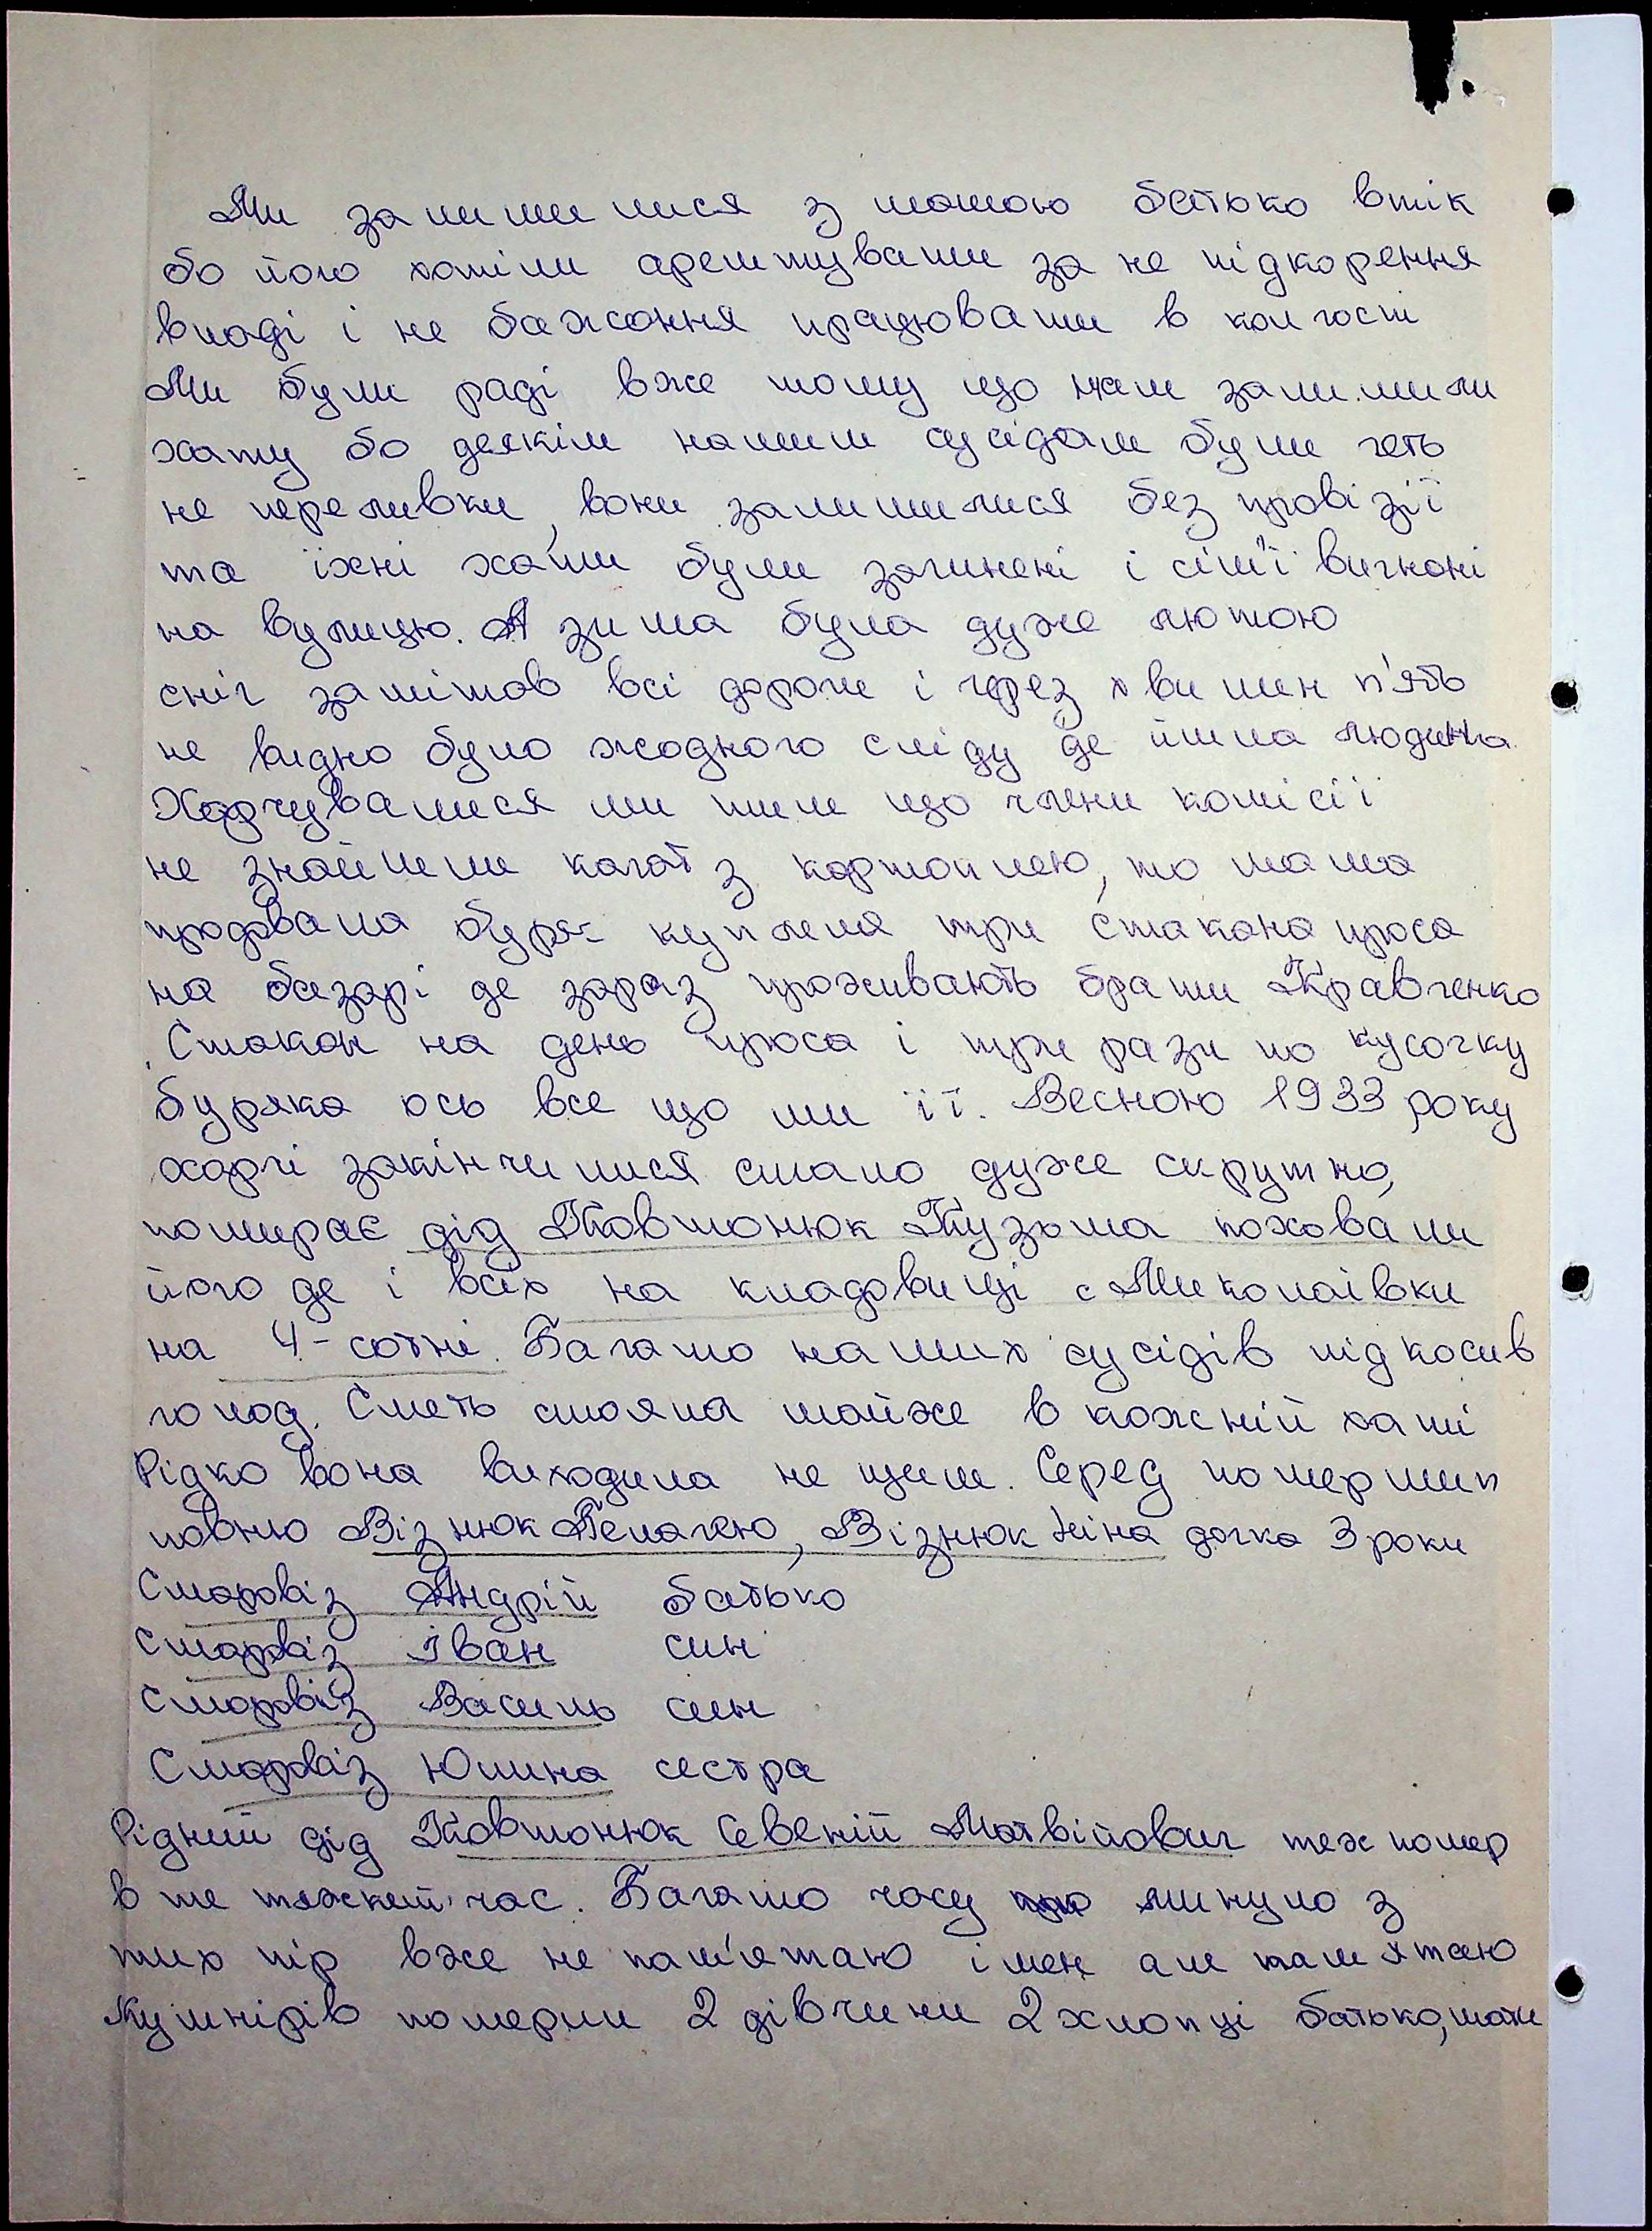 Ми залишилися з мамою батько втік
бо його хотіли арештувати за не підкорення
владі і не бажання працювати в колгоспі
Ми були раді вже тому що нам залишили
хату бо деяким нашим сусідам були геть
не переливки, вони залишилися без провізії
та їхні хати були зачинені і сім'ї вигнані
на вулицю. А зима була дуже лютою
сніг замітав всі дороги і через хвилин п'ять
не видно було жодного сліду де йшла людина
Харчувалися ми тим що члени комісії
не знайшли кагат з картоплею, то мама
продавала буряк купляла три стакана проса
на базарі де зараз проживають брати Кравченко
Стакан на день проса і три рази по кусочку
буряка ось все що ми її. Весною 1933 року
харчі закінчилися стало дуже скрутно,
помирає дід Ковтонюк Кузьма поховали
його де і всіх на кладовищі с Миколаївки
на 4-сотні. Багато наших сусідів підкосив
голод. Сметь стояла майже в кожній хаті
Рідко вона виходила не щем. Серед померших
повню Візнюк Пелагею, Візнюк Ніна дочка 3 роки
Старовіз Андрій батько
Старовіз Іван син
Старовіз Василь син
Старовіз Юлина сестра
Рідний дід Ковтонюк Севеній Матвійович теж помер
в те тяжкий час. Багато часу минуло з
тих пір вже не пам'ятаю імен але памятаю
Кушнірів померли 2 дівчини 2 хлопці батько, мати